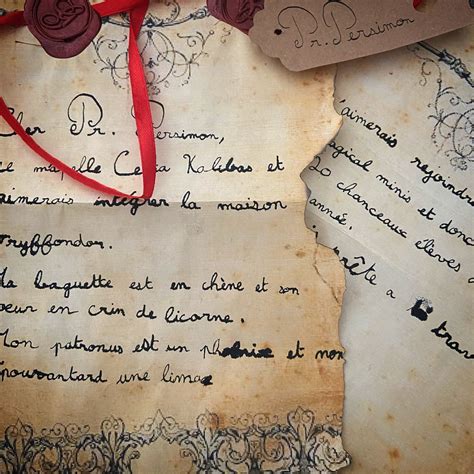 Pr. Persimon
Cher Pr. Persimon,
Je m'apelle Celia Kalibas et
aimerais intégrer la maison
Gryffondor.
Ma baguette est en chêne et son
coeur en crin de licorne.
Mon patronus est un phoenix et mon
épouvantard une limace
j'aimerais rejoindre
magical minis et donc
20 chanceux élèves
année.
prête a trav